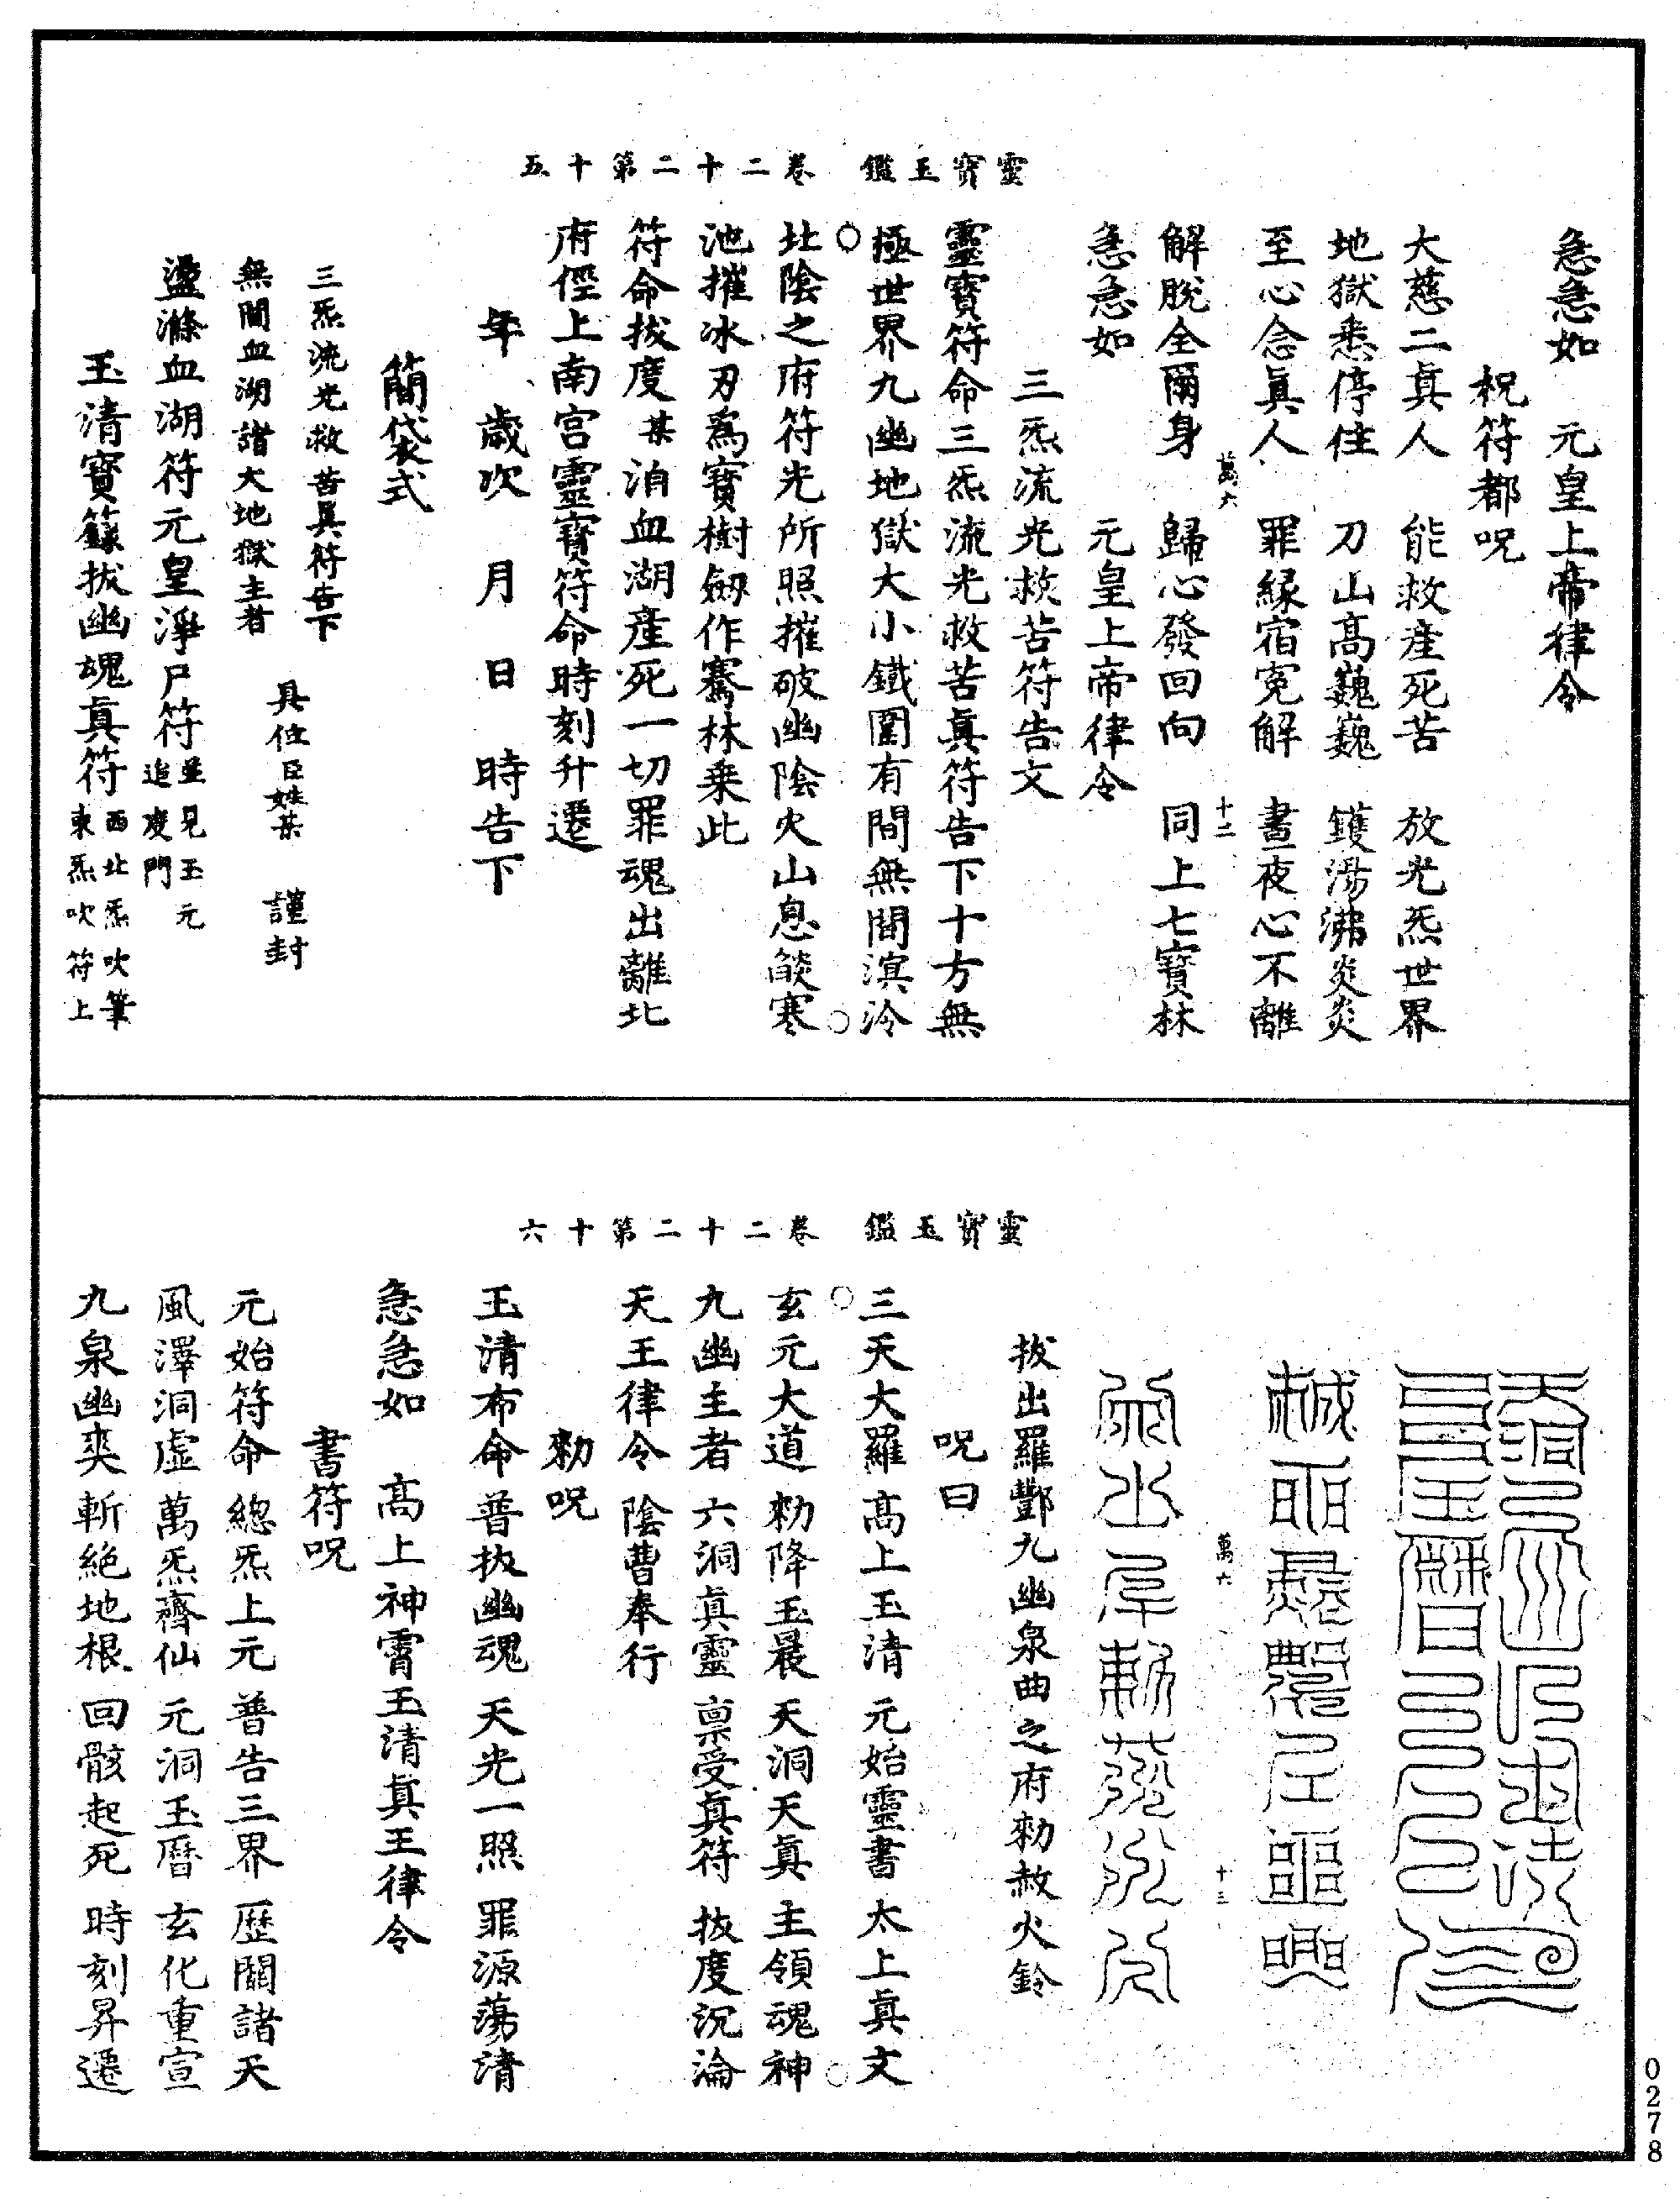 靈寶玉鑑　卷二十二第十五
急急如　元皇上帝律令
祝符都呪
大慈二真人　能救產死苦　放光炁世界
地獄悉停住　刀山高巍巍　鑊湯沸炎炎
至心念真人　罪緣宿冤解　晝夜心不離
萬六　十二
解脫全爾身　歸心發回向　同上七寶林
急急如　元皇上帝律令
三炁流光救苦符告文
靈寶符命三炁流光救苦真符告下十方無
極世界九幽地獄大小鐵圍有間無間溟泠
北陰之府符光所照摧破幽陰火山息燄寒
池摧冰刃為寶樹劒作騫林乘此
符命拔度某洎血湖產死一切罪魂出離北
府徑上南宮靈寶符命時刻升遷
年　歲次　月　日　時告下
簡袋式
三炁流光救苦真符告下
具位臣姓某　謹封
無間血湖諸大地獄主者
盪滌血湖符元皇淨尸符並見玉元
追度門
玉清寶籙拔幽魂真符西北炁吹筆
東炁吹符上
靈寶玉鑑　卷二十二第十六
萬六　十三
拔出羅酆九幽泉曲之府勑赦火鈴
呪曰
三天大羅　高上玉清　元始靈書　太上真文
玄元大道　勑降玉晨　天洞天真　主領魂神
九幽主者　六洞真靈　禀受真符　拔度沉淪
天王律令　陰曹奉行
勑呪
玉清布命　普拔幽魂　天光一照　罪源蕩清
急急如　高上神霄玉清真王律令
書符呪
元始符命　總炁上元　普告三界　歷關諸天
風澤洞虛　萬炁齊仙　元洞玉曆　玄化重宣
九泉幽爽　斬絕地根　回骸起死　時刻昇遷
0278